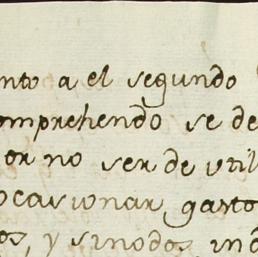 nto a el segundo
omprehendo se de
or no ser de util
ocasionar gasto
os, y sinodos, ind